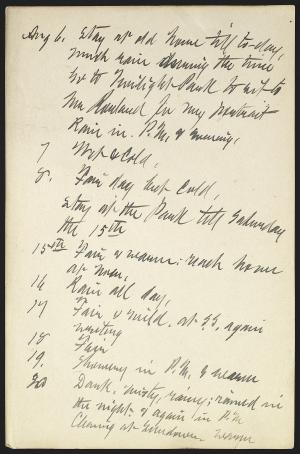 Aug 6. Stay at old home till to-day,
much rain during the time
Go to Twilight Park to sit to
Mrs for my portrait
Rain in P.M. & evening.
7 Wet & cold,
8. Fair day but cold,
Stay at the Park till Saturday
the 15th
15th Fair & warm; reach home
at noon,
16 Rain all day,
17 Fair & mild. at S.S. again
writing
18 Fair
19. Showery in P.M. & warm
20 Dark, misty, rainy; rained in
the night & again in P.M.
Clearing at Sundown warm